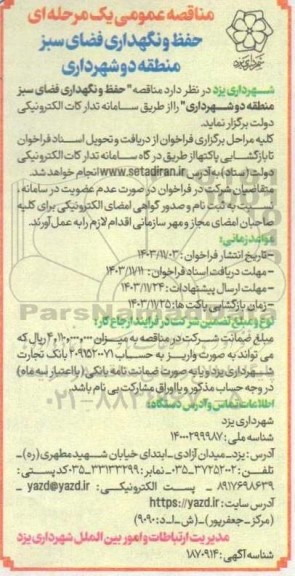 مناقصه عمومی یک مرحله ای
حفظ و نگهداری فضای سبز
منطقه دو شهرداری
شهرداری یزد
شهرداری یزد در نظر دارد مناقصه " حفظ و نگهداری فضای سبز
منطقه دو شهرداری " را از طریق سامانه تدارکات الکترونیکی
دولت برگزار نماید.
کلیه مراحل برگزاری فراخوان از دریافت و تحویل اسناد فراخوان
تا بازگشایی پاکتها از طریق درگاه سامانه تدارکات الکترونیکی
دولت (ستاد) به آدرس www.setadiran.ir انجام خواهد شد.
متقاضیان شرکت در فراخوان در صورت عدم عضویت در سامانه ،
نسبت به ثبت نام و صدور گواهی امضای الکترونیکی برای کلیه
صاحبان امضای مجاز و مهر سازمانی اقدام لازم را به عمل آورند.
مواعد زمانی:
-تاریخ انتشار فراخوان : ۱۴۰۳/۱۱/۰۳
- مهلت دریافت اسناد فراخوان : ۱۴۰۳/۱۱/۱۱
- مهلت ارسال پیشنهادات : ۱۴۰۳/۱۱/۲۴
- زمان بازگشایی پاکت ها : ۱۴۰۳/۱۱/۲۵
نوع و مبلغ تضمین شرکت در فرایند ارجاع کار :
مبلغ ضمانت شرکت در مناقصه به میزان ۴,۱۱۰,۰۰۰,۰۰۰ ریال که
می تواند به صورت واریز به حساب ۲۰۹۱۵۲۰۰۷۱ بانک تجارت
شهرداری یزد و یا به صورت ضمانت نامه بانکی (با اعتبار سه ماه)
در وجه حساب مذکور و یا اوراق مشارکت بی نام باشد.
اطلاعات تماس و آدرس دستگاه:
شهرداری یزد
شناسه ملی : ۱۴۰۰۰۲۹۹۹۸۷
آدرس : یزد-میدان آزادی -ابتدای خیابان شهید مطهری (ره)-
تلفن : ۳۷۲۵۲۰۲-۰۳۵ نمابر : ۳۳۱۳۳۲۹۹-۰۳۵ کدپستی :
۸۹۱۷۶۹۸۶۳۹ - پست الکترونیکی: yazd@yazd.ir -
آدرس سایت : https://yazd.ir
(مرکز-جعفرپور)-(ش-لد: ۹۰۹۰)
مدیریت ارتباطات و امور بین الملل شهرداری یزد
شناسه آگهی : ۱۸۷۰۹۱۴
ParsNamadData